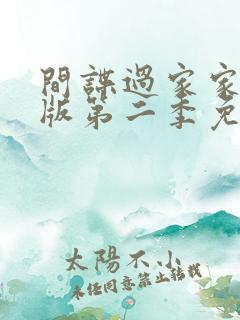 間諜過家家
版第二季免
太陽不小
未經同意禁止轉載